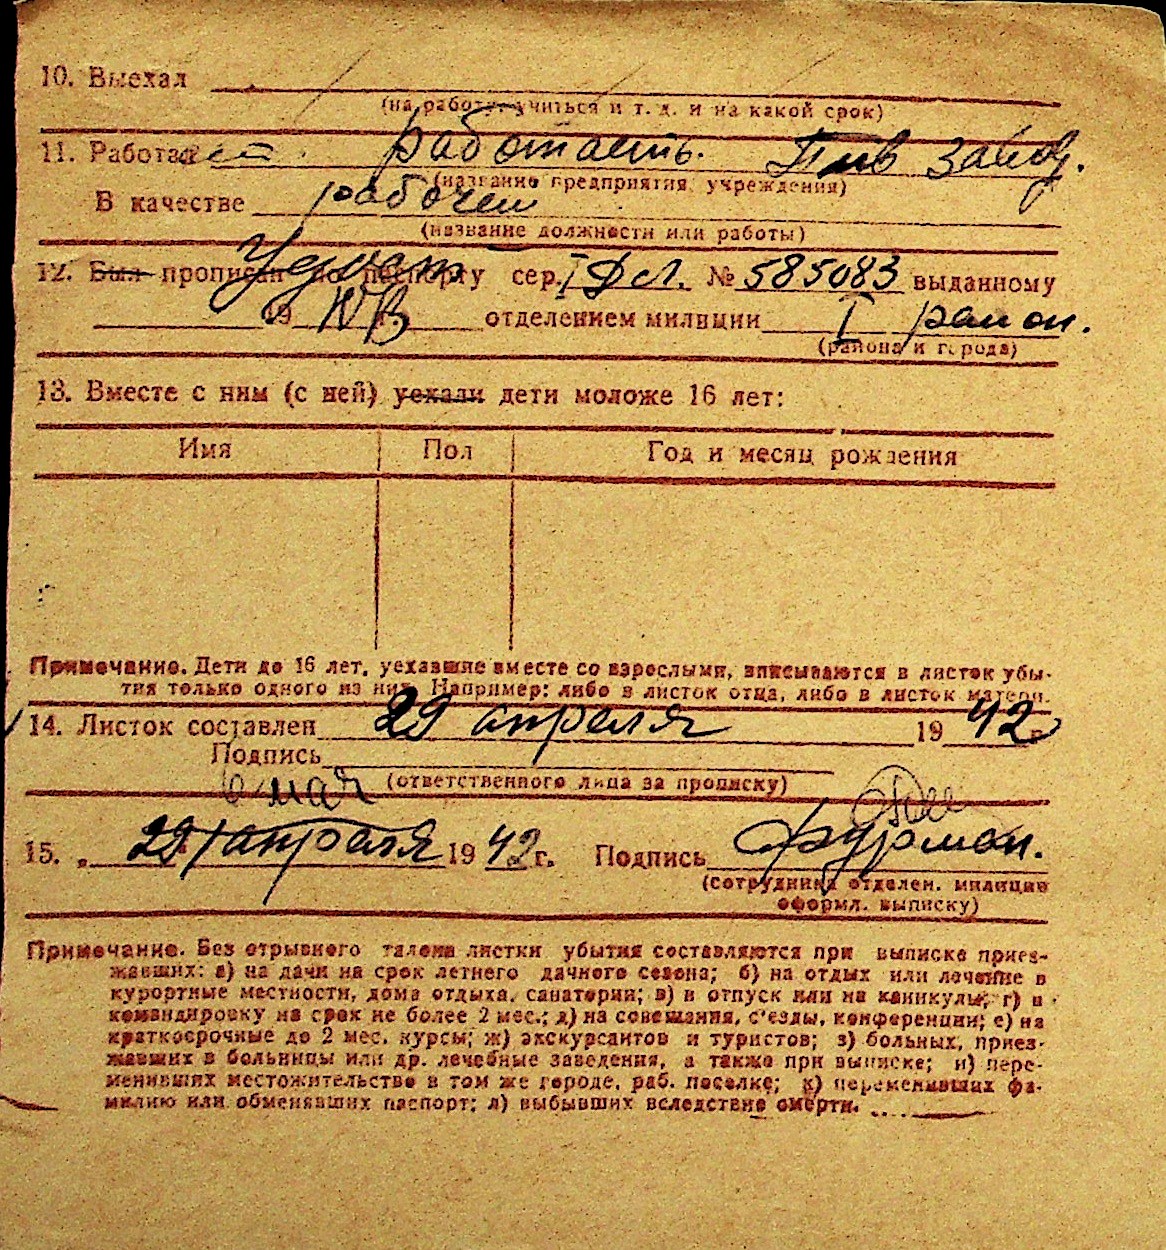 10. Выехал
(на работу, учиться и т. д. и на какой срок)
11. Работает. работаеть. Пив завод.
(название предприятия, учреждения)
В качестве рабочем
(название должности или работы)
12. Был прописан по паспорту сер. № 585083 выданному
19 г. отделением милиции I район.
(района и города)
13. Вместе с ним (с ней) уехали дети моложе 16 лет:
Имя Пол Год и месяц рождения
Примечание. Дети до 16 лет, уехавшие вместе со взрослыми, вписываются в листок убы-
тия только одного из них. Например: либо в листок отца, либо в листок матери.
14. Листок составлен 29 апреля 1942 г.
Подпись
(ответственного лица за прописку)
6 мая
15. „ 29 " апреля 1942 г. Подпись Фурман.
(сотрудника отделен. милиции
оформл. выписку)
Примечание. Без отрывного талона листки убытия составляются при выписке приез-
жавших: а) на дачи на срок летнего дачного сезона; б) на отдых или лечение в
курортные местности, дома отдыха, санатории; в) в отпуск или на каникулы; г) в
командировку на срок не более 2 мес.; д) на совещания, с'езды, конференции; е) на
краткосрочные до 2 мес. курсы; ж) экскурсантов и туристов; з) больных, приез-
жавших в больницы или др. лечебные заведения, а также при выписке; и) пере-
менивших местожительство в том же городе, раб. поселке; к) переменивших фа-
милию или обменявших паспорт; л) выбывших вследствие смерти.